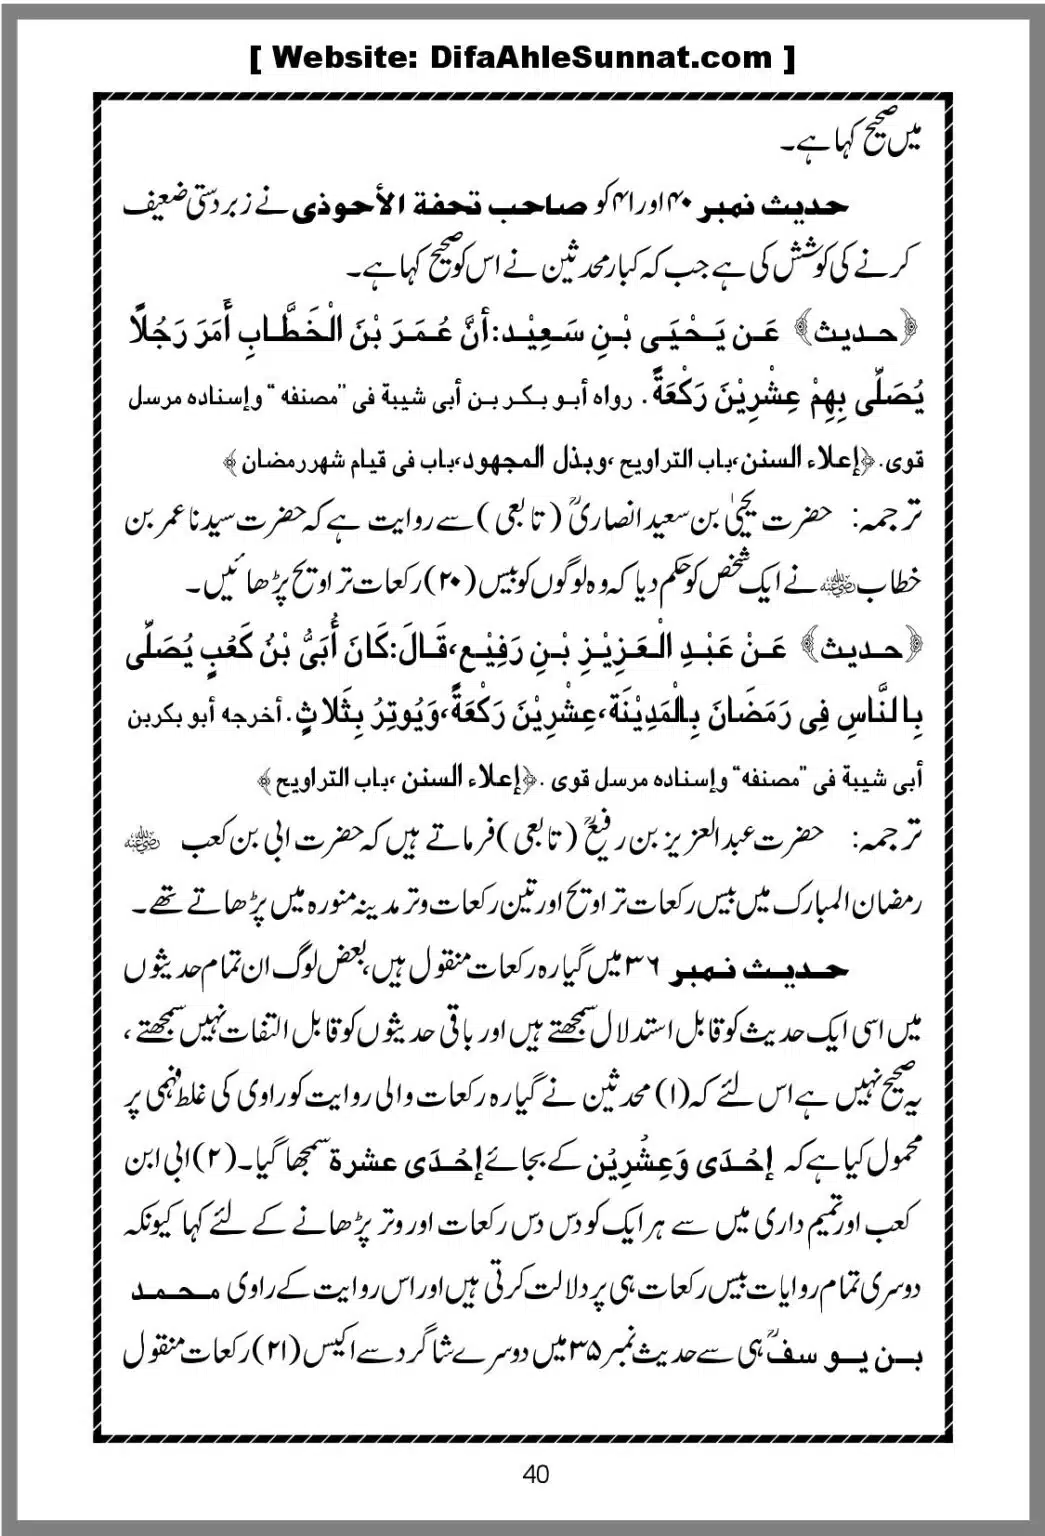 [ Website: DifaAhleSunnat.com ]
میں صحیح کہا ہے۔
حدیث نمبر ۴۰ اور ۴۱ کو صاحب تحفة الأحوذی نے زبردستی ضعیف
کرنے کی کوشش کی ہے جب کہ کبار محدثین نے اس کو صحیح کہا ہے۔
﴿حدیث﴾ عَن یَحْیَی بْنِ سَعِیْد:أنَّ عُمَرَ بْنَ الْخَطَّابِ أَمَرَ رَجُلاً
یُصَلِّی بِهِمْ عِشْرِیْنَ رَکْعَةً . رواه أبو بکر بن أبی شیبة فی ”مصنفه“ وإسناده مرسل
قوی.﴿إعلاء السنن،باب التراویح ،وبذل المجهود،باب فی قیام شهر رمضان﴾
ترجمہ: حضرت یحییٰ بن سعید انصاریؒ (تابعی) سے روایت ہے کہ حضرت سیدنا عمر بن
خطاب رضی اللہ عنہ نے ایک شخص کو حکم دیا کہ وہ لوگوں کو بیس (۲۰) رکعات تراویح پڑھائیں۔
﴿حدیث﴾ عَنْ عَبْدِ الْعَزِیْزِ بْنِ رَفِیْع،قَالَ:کَانَ أُبَیُّ بْنُ کَعْبٍ یُصَلِّی
بِالنَّاسِ فِی رَمَضَانَ بِالْمَدِیْنَة،عِشْرِیْنَ رَکْعَةً،وَیُوتِرُ بِثَلاثٍ.أخرجه أبو بکربن
أبی شیبة فی ”مصنفه“ وإسناده مرسل قوی .﴿إعلاء السنن ،باب التراویح﴾
ترجمہ: حضرت عبدالعزیز بن رفیعؒ (تابعی) فرماتے ہیں کہ حضرت ابی بن کعب رضی اللہ عنہ
رمضان المبارک میں بیس رکعات تراویح اور تین رکعات وتر مدینہ منورہ میں پڑھاتے تھے۔
حدیث نمبر ۳۶ میں گیارہ رکعات منقول ہیں،بعض لوگ ان تمام حدیثوں
میں اسی ایک حدیث کو قابل استدلال سمجھتے ہیں اور باقی حدیثوں کو قابل التفات نہیں سمجھتے،
یہ صحیح نہیں ہے اس لئے کہ (۱) محدثین نے گیارہ رکعات والی روایت کو راوی کی غلط فہمی پر
محمول کیا ہے کہ إحُدَی وَعِشُرِیُن کے بجائے إحُدَی عشرة سمجھا گیا۔(۲) ابی ابن
کعب اور تمیم داری میں سے ہر ایک کو دس دس رکعات اور وتر پڑھانے کے لئے کہا کیونکہ
دوسری تمام روایات بیس رکعات ہی پر دلالت کرتی ہیں اور اس روایت کے راوی محمد
بن یوسفؒ ہی سے حدیث نمبر ۳۵ میں دوسرے شاگرد سے اکیس (۲۱) رکعات منقول
40